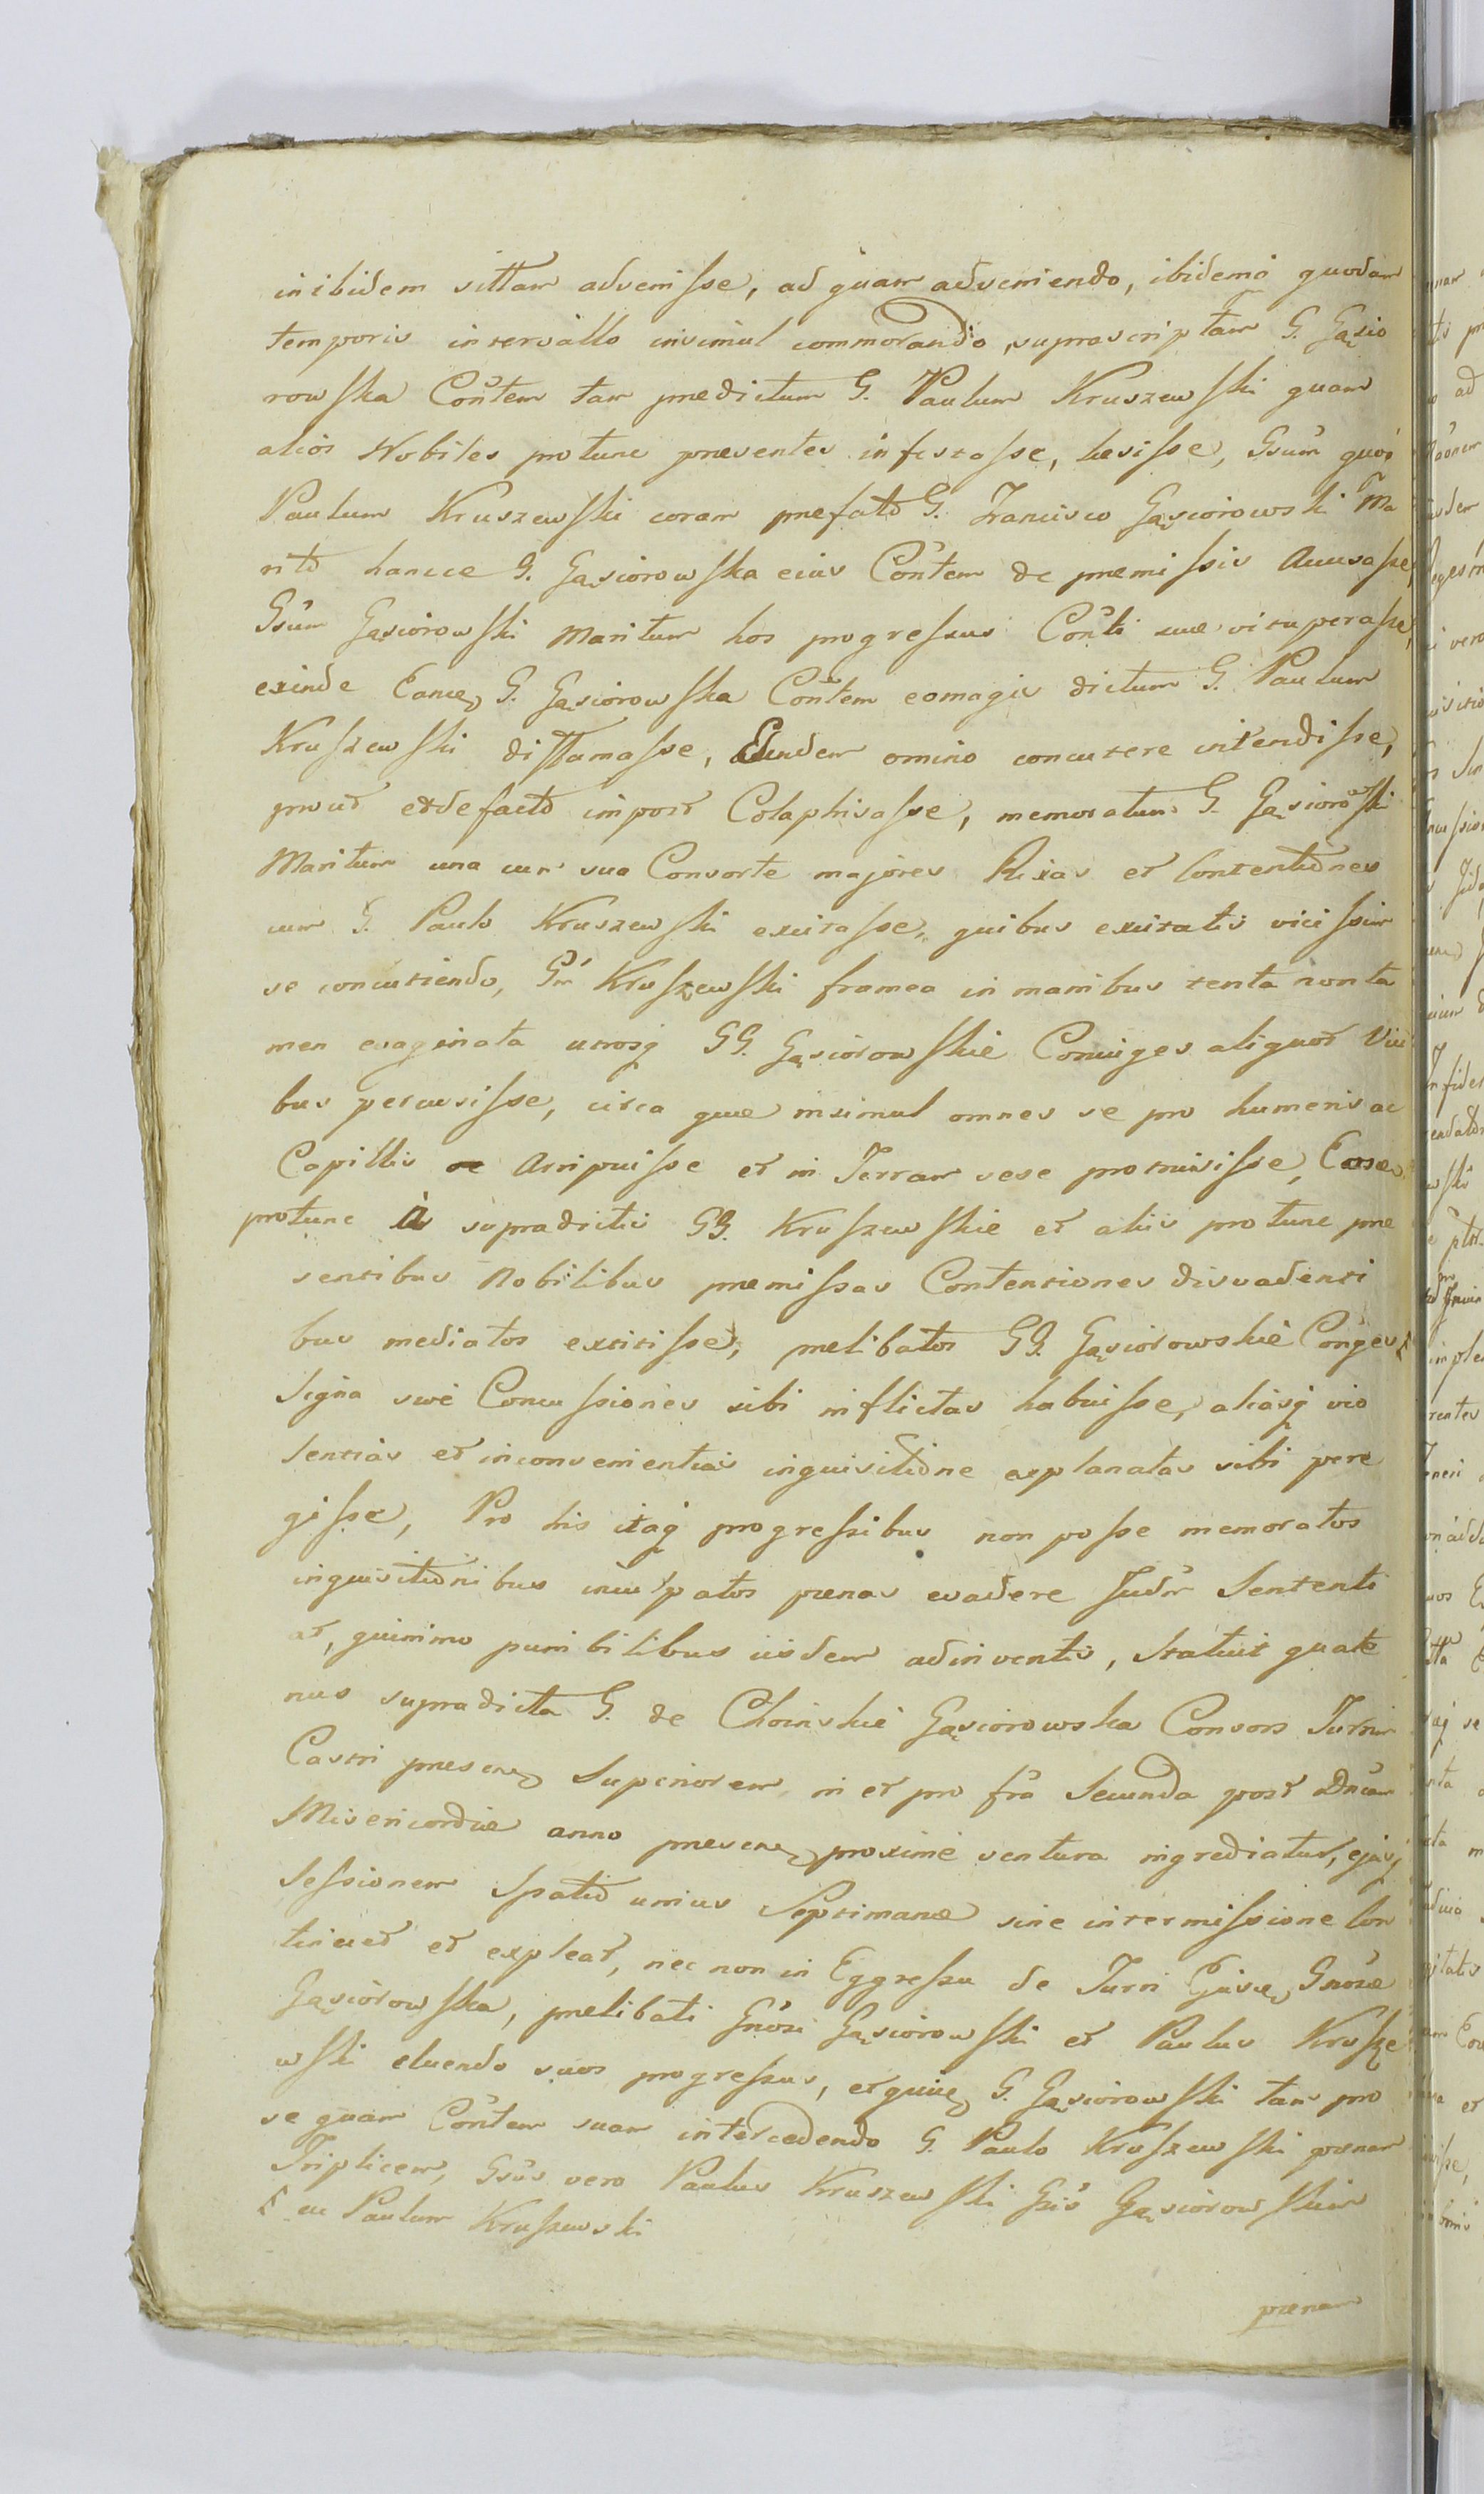 inibidem villam advenisse, ad quam adveniendo, ibidemq quodam
temporis intervallo insimul commorando, suprascriptam G. Gąsio
rowska Coñtem tam predictum G. Paulum Kruszewski quam
alios Nobiles protunc presentes infestasse, lesisse, Gsum quoq
Paulum Kruszewski coram prefato G. Francisco Gąsiorowski Ma
rito hancce G. Gąsiorowska eius Coñtem de premissis accusasse,
Gsum Gąsiorowski Maritum hos progressus Coñti sue vituperasse,
exinde Eance G. Gąsiorowska Coñtem eomagis dictum G. Paulum
Kruszewski diffamasse, Eundem omino concutere intendisse,
prout et defacto impost Colaphisasse, memoratum G. Gąsiorowski
Maritum una cum sua Consorte majores Rixas et Contentiones
cum G. Paulo Kruszewski excitasse, quibus excitatis vicissim
se concutiendo, Gm Kruszewski framea in manibus tenta non ta
men evaginata utrosq GG. Gąsiorowskie Coniuges aliquot Vici
bus percusisse, circa que insimul omnes se pro humeris ac
Capillis Arripuisse et in Terram sese promisisse,
protunc à supradictis GG. Kruszewskie et aliis protunc pre
sentibus Nobilibus premissas Contentiones disvadenti
bus mediatos extitisse, prelibatos GG. Gąsiorowskie Conges
Signa sive Concussiones sibi inflictas habuisse, aliasq vio
lentias et inconvenientias inquisitione explanatas sibi pere
gisse, Pro his itaq progressibus non posse memoratos
inquisitionibus inculpatos penas evadere Judm Sententi
at, quinimo punibilibus iisdem adinventis, Statuit quate
nus supradicta G. de Choinskie Gąsiorowska Consors Turrim
Castri presen Superiorem in et pro fra Secunda post Dncam
Misericordie anno presen proxime ventura ingrediatur, ejusq
Sessionem Spatio unius Septimane sine intermissione Con
tinuet et expleat, nec non in Eggressu de Turri Ejusce Gnose
Gąsiorowska, prelibati Gnosi Gąsiorowski et Paulus Krusze
wski eluendo suos progressus, et quice G. Gąsiorowski tam pro
se quam Coñtem suam intercedendo G. Paulo Kruszewski penam
Triplicem, Gsus vero Paulus Kruszewski Gsis Gąsiorowskim
ac Paulum Kruszewski
penam